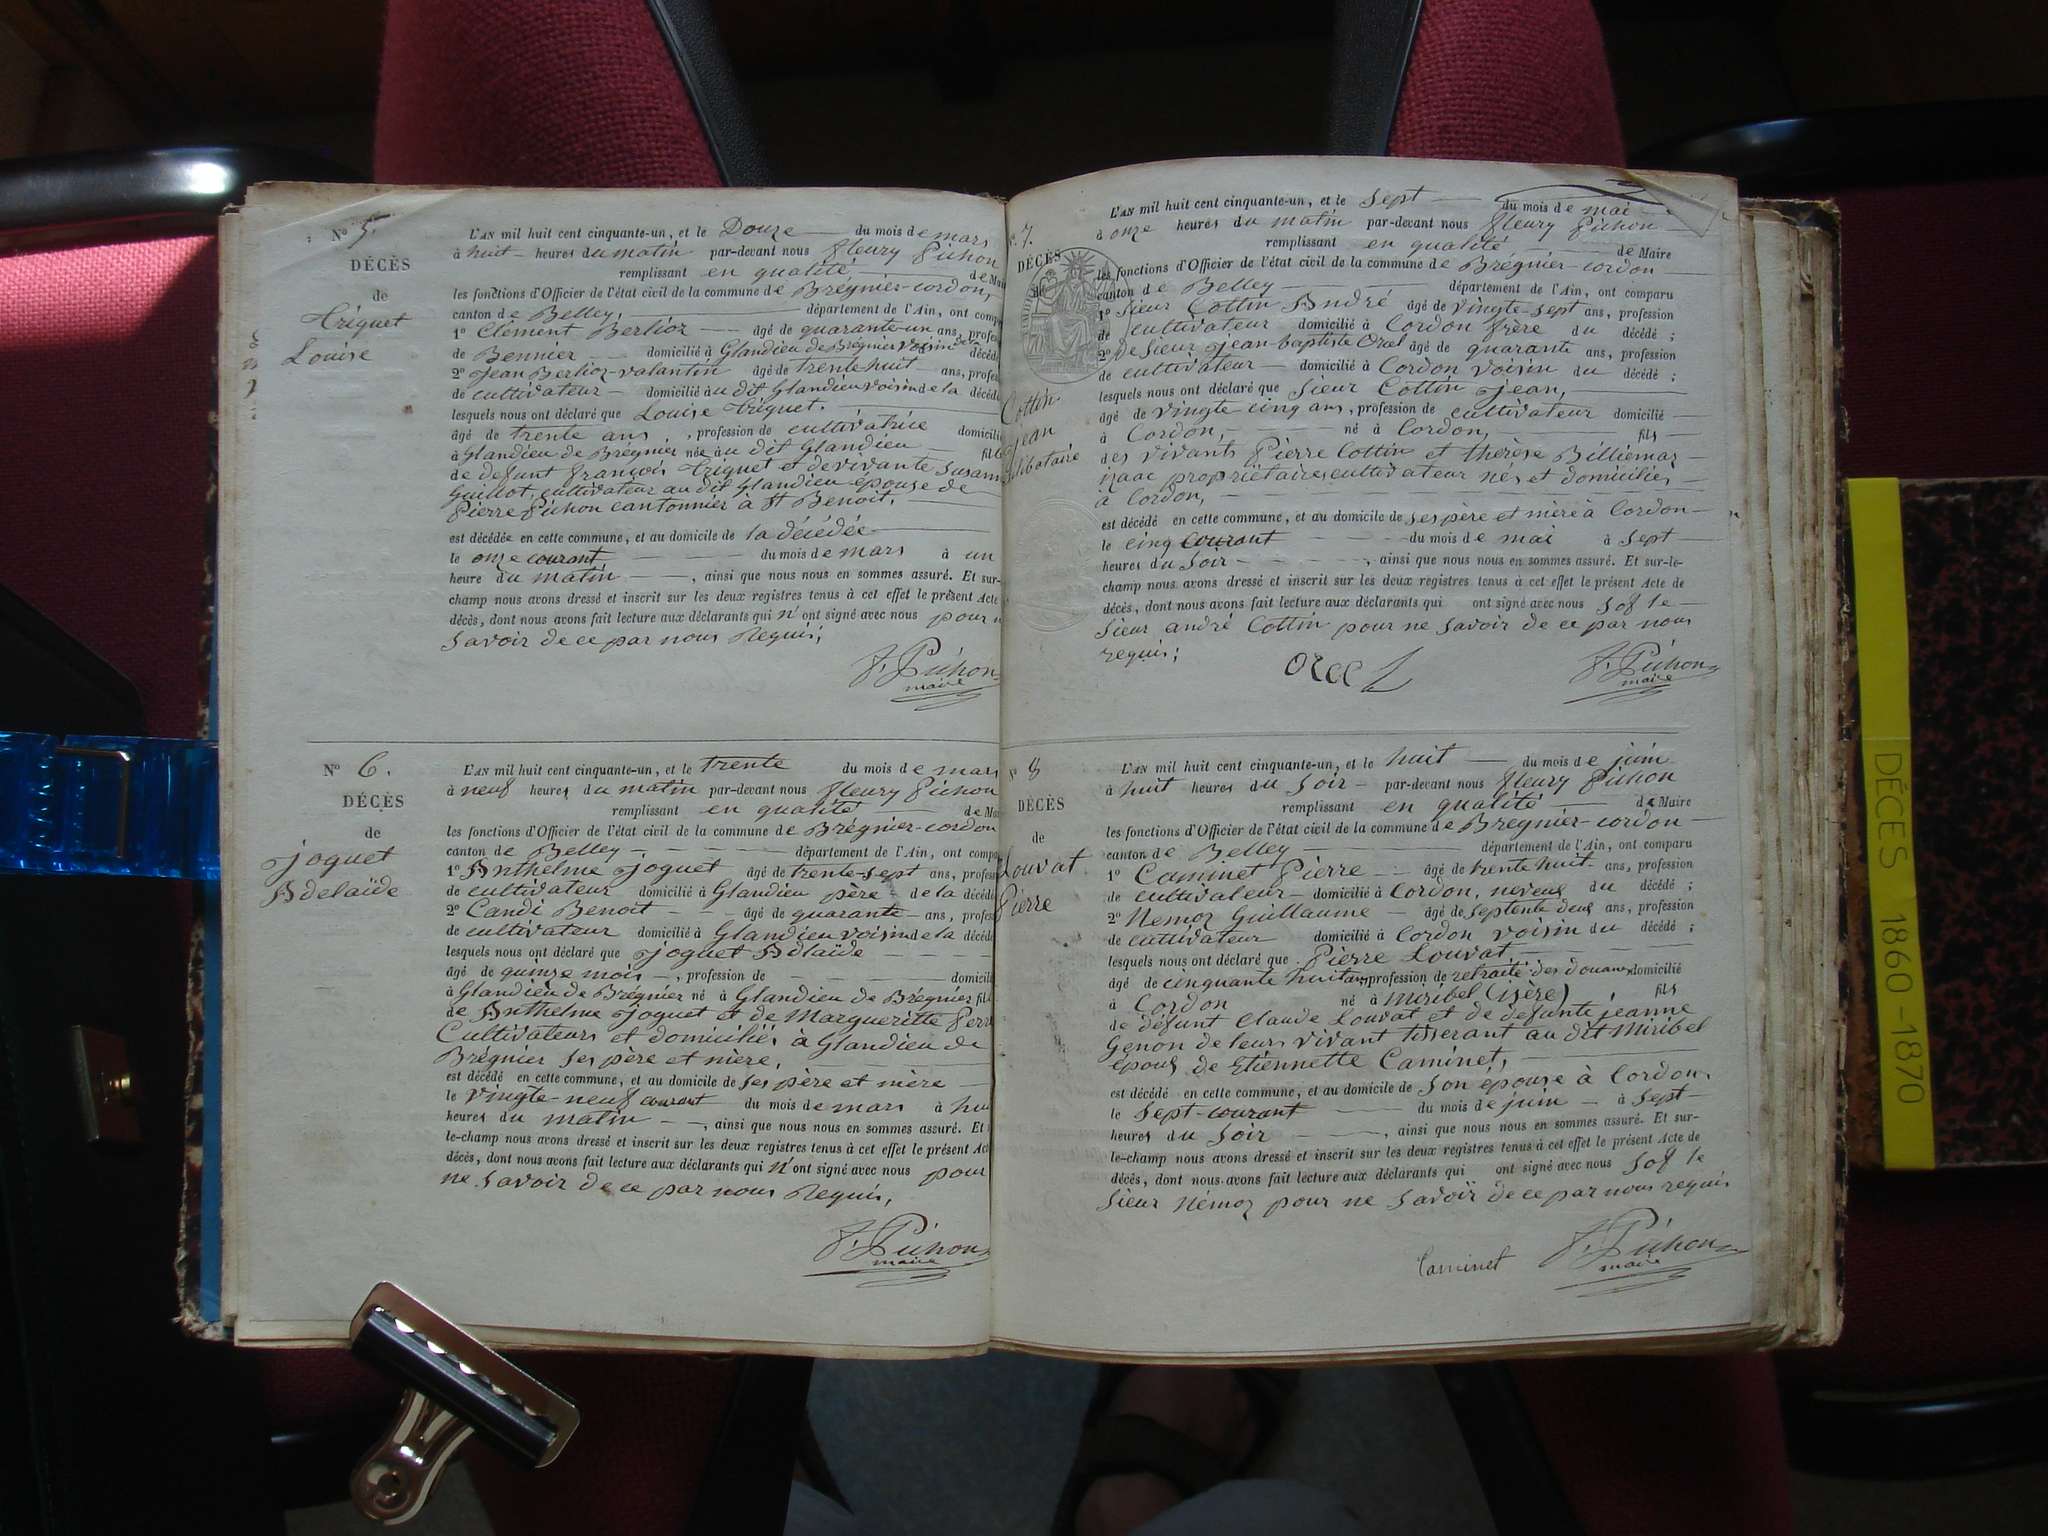 N° 5.
DÉCÈS
de
Triquet
Louise
L'AN mil huit cent cinquante-un, et le Douze du mois de mars
à huit heures du matin par-devant nous fleury Pichon
remplissant en qualité de Mai
les fonctions d'Officier de l'état civil de la commune de Brégnier-cordon,
canton de Belley, département de l'Ain, ont comp
1° Clément Berlioz âgé de quarante-un ans, profes
de domicilié à Glandieu de Brégnier voisin de la décéd
2° Jean Berlioz-valantin âgé de trente-huit ans, profes
de cultivateur domicilié au dit Glandieu voisin de la décéd
lesquels nous ont déclaré que Louise Triquet.
âgé de trente ans, profession de cultivatrice domicili
à Glandieu de Brégnier née au dit Glandieu fil
de defunt françois Triquet et de vivante Susann
Guillot, cultivateur au dit Glandieu épouse de
Pierre Pichon cantonnier à St Benoit.
est décédée en cette commune, et au domicile de la décédée
le onze courant du mois de mars à un
heure du matin, ainsi que nous nous en sommes assuré. Et sur-
champ nous avons dressé et inscrit sur les deux registres tenus à cet effet le présent Acte
décès, dont nous avons fait lecture aux déclarants qui n'ont signé avec nous pour n
savoir de ce par nous Requis;
F. Pichon
maire
N° 6.
DÉCÈS
de
Joguet
Adelaïde
L'AN mil huit cent cinquante-un, et le trente du mois de mars
à neuf heures du matin par-devant nous fleury Pichon
remplissant en qualité de Mai
les fonctions d'Officier de l'état civil de la commune de Brégnier-cordon
canton de Belley, département de l'Ain, ont compa
1° Anthelme Joguet âgé de trente-sept ans, profess
de cultivateur domicilié à Glandieu père de la décéd
2° Candi Benoit âgé de quarante ans, profes
de cultivateur domicilié à Glandieu voisin de la décéd
lesquels nous ont déclaré que Joguet Adlaïde
âgé de quinze mois, profession de domicili
à Glandieu de Brégnier né à Glandieu de Brégnier fil
de Anthelme Joguet et de Margueritte Perr
Cultivateurs et domiciliés à Glandieu de
Brégnier ses père et mère.
est décédé en cette commune, et au domicile de ses père et mère
le vingte-neuf courant du mois de mars à hui
heures du matin, ainsi que nous nous en sommes assuré. Et
le-champ nous avons dressé et inscrit sur les deux registres tenus à cet effet le présent Act
décès, dont nous avons fait lecture aux déclarants qui n'ont signé avec nous pour
ne savoir de ce par nous Requis,
F. Pichon
maire
7.
DÉCÈS
Cottin
Jean
L'AN mil huit cent cinquante-un, et le sept du mois de mai
à onze heures du matin par-devant nous fleury Pichon
remplissant en qualité de Maire
les fonctions d'Officier de l'état civil de la commune de Brégnier-cordon
canton de Belley département de l'Ain, ont comparu
1° Sieur Cottin André âgé de vingte-sept ans, profession
de cultivateur domicilié à Cordon frère du décédé;
2° de Sieur Jean-baptiste Orcel âgé de quarante ans, profession
de cultivateur domicilié à Cordon voisin du décédé;
lesquels nous ont déclaré que Sieur Cottin Jean,
âgé de vingte cinq ans, profession de cultivateur domicilié
à Cordon, né à Cordon, fils
des vivants Pierre Cottin et thérèse Billiemaz
izaac propriétaires cultivateur nés et domiciliés
à Cordon,
est décédé en cette commune, et au domicile de ses père et mère à Cordon
le cinq courant du mois de mai à sept
heures du soir, ainsi que nous nous en sommes assuré. Et sur-le-
champ nous avons dressé et inscrit sur les deux registres tenus à cet effet le présent Acte de
décès, dont nous avons fait lecture aux déclarants qui ont signé avec nous sof le
Sieur andré Cottin pour ne savoir de ce par nous
requis;
Orcel
F. Pichon
maire
8
DÉCÈS
de
Louvat
Pierre
L'AN mil huit cent cinquante-un, et le huit du mois de juin
à huit heures du soir par-devant nous fleury Pichon
remplissant en qualité de Maire
les fonctions d'Officier de l'état civil de la commune de Brégnier-cordon
canton de Belley département de l'Ain, ont comparu
1° Caminet Pierre âgé de trente huit ans, profession
de cultivateur domicilié à Cordon, neveu du décédé;
2° Nemoz Guillaume âgé de septente deus ans, profession
de cultivateur domicilié à Cordon voisin du décédé;
lesquels nous ont déclaré que Pierre Louvat,
âgé de cinquante huit ans profession de retraité des douanes domicilié
à Cordon né à Miribel (isère) fils
de défunt Claude Louvat et de defunte jeanne
Genon de leurs vivant tisserant au dit Miribel
épous de Etiennette Caminet,
est décédé en cette commune, et au domicile de son épouse à Cordon.
le sept-courant du mois de juin à sept
heures du soir, ainsi que nous nous en sommes assuré. Et sur-
le-champ nous avons dressé et inscrit sur les deux registres tenus à cet effet le présent Acte de
décès, dont nous avons fait lecture aux déclarants qui ont signé avec nous sof le
Sieur Némoz pour ne savoir de ce par nous requis
Caminet
F. Pichon
maire
DÉCES 1860-1870